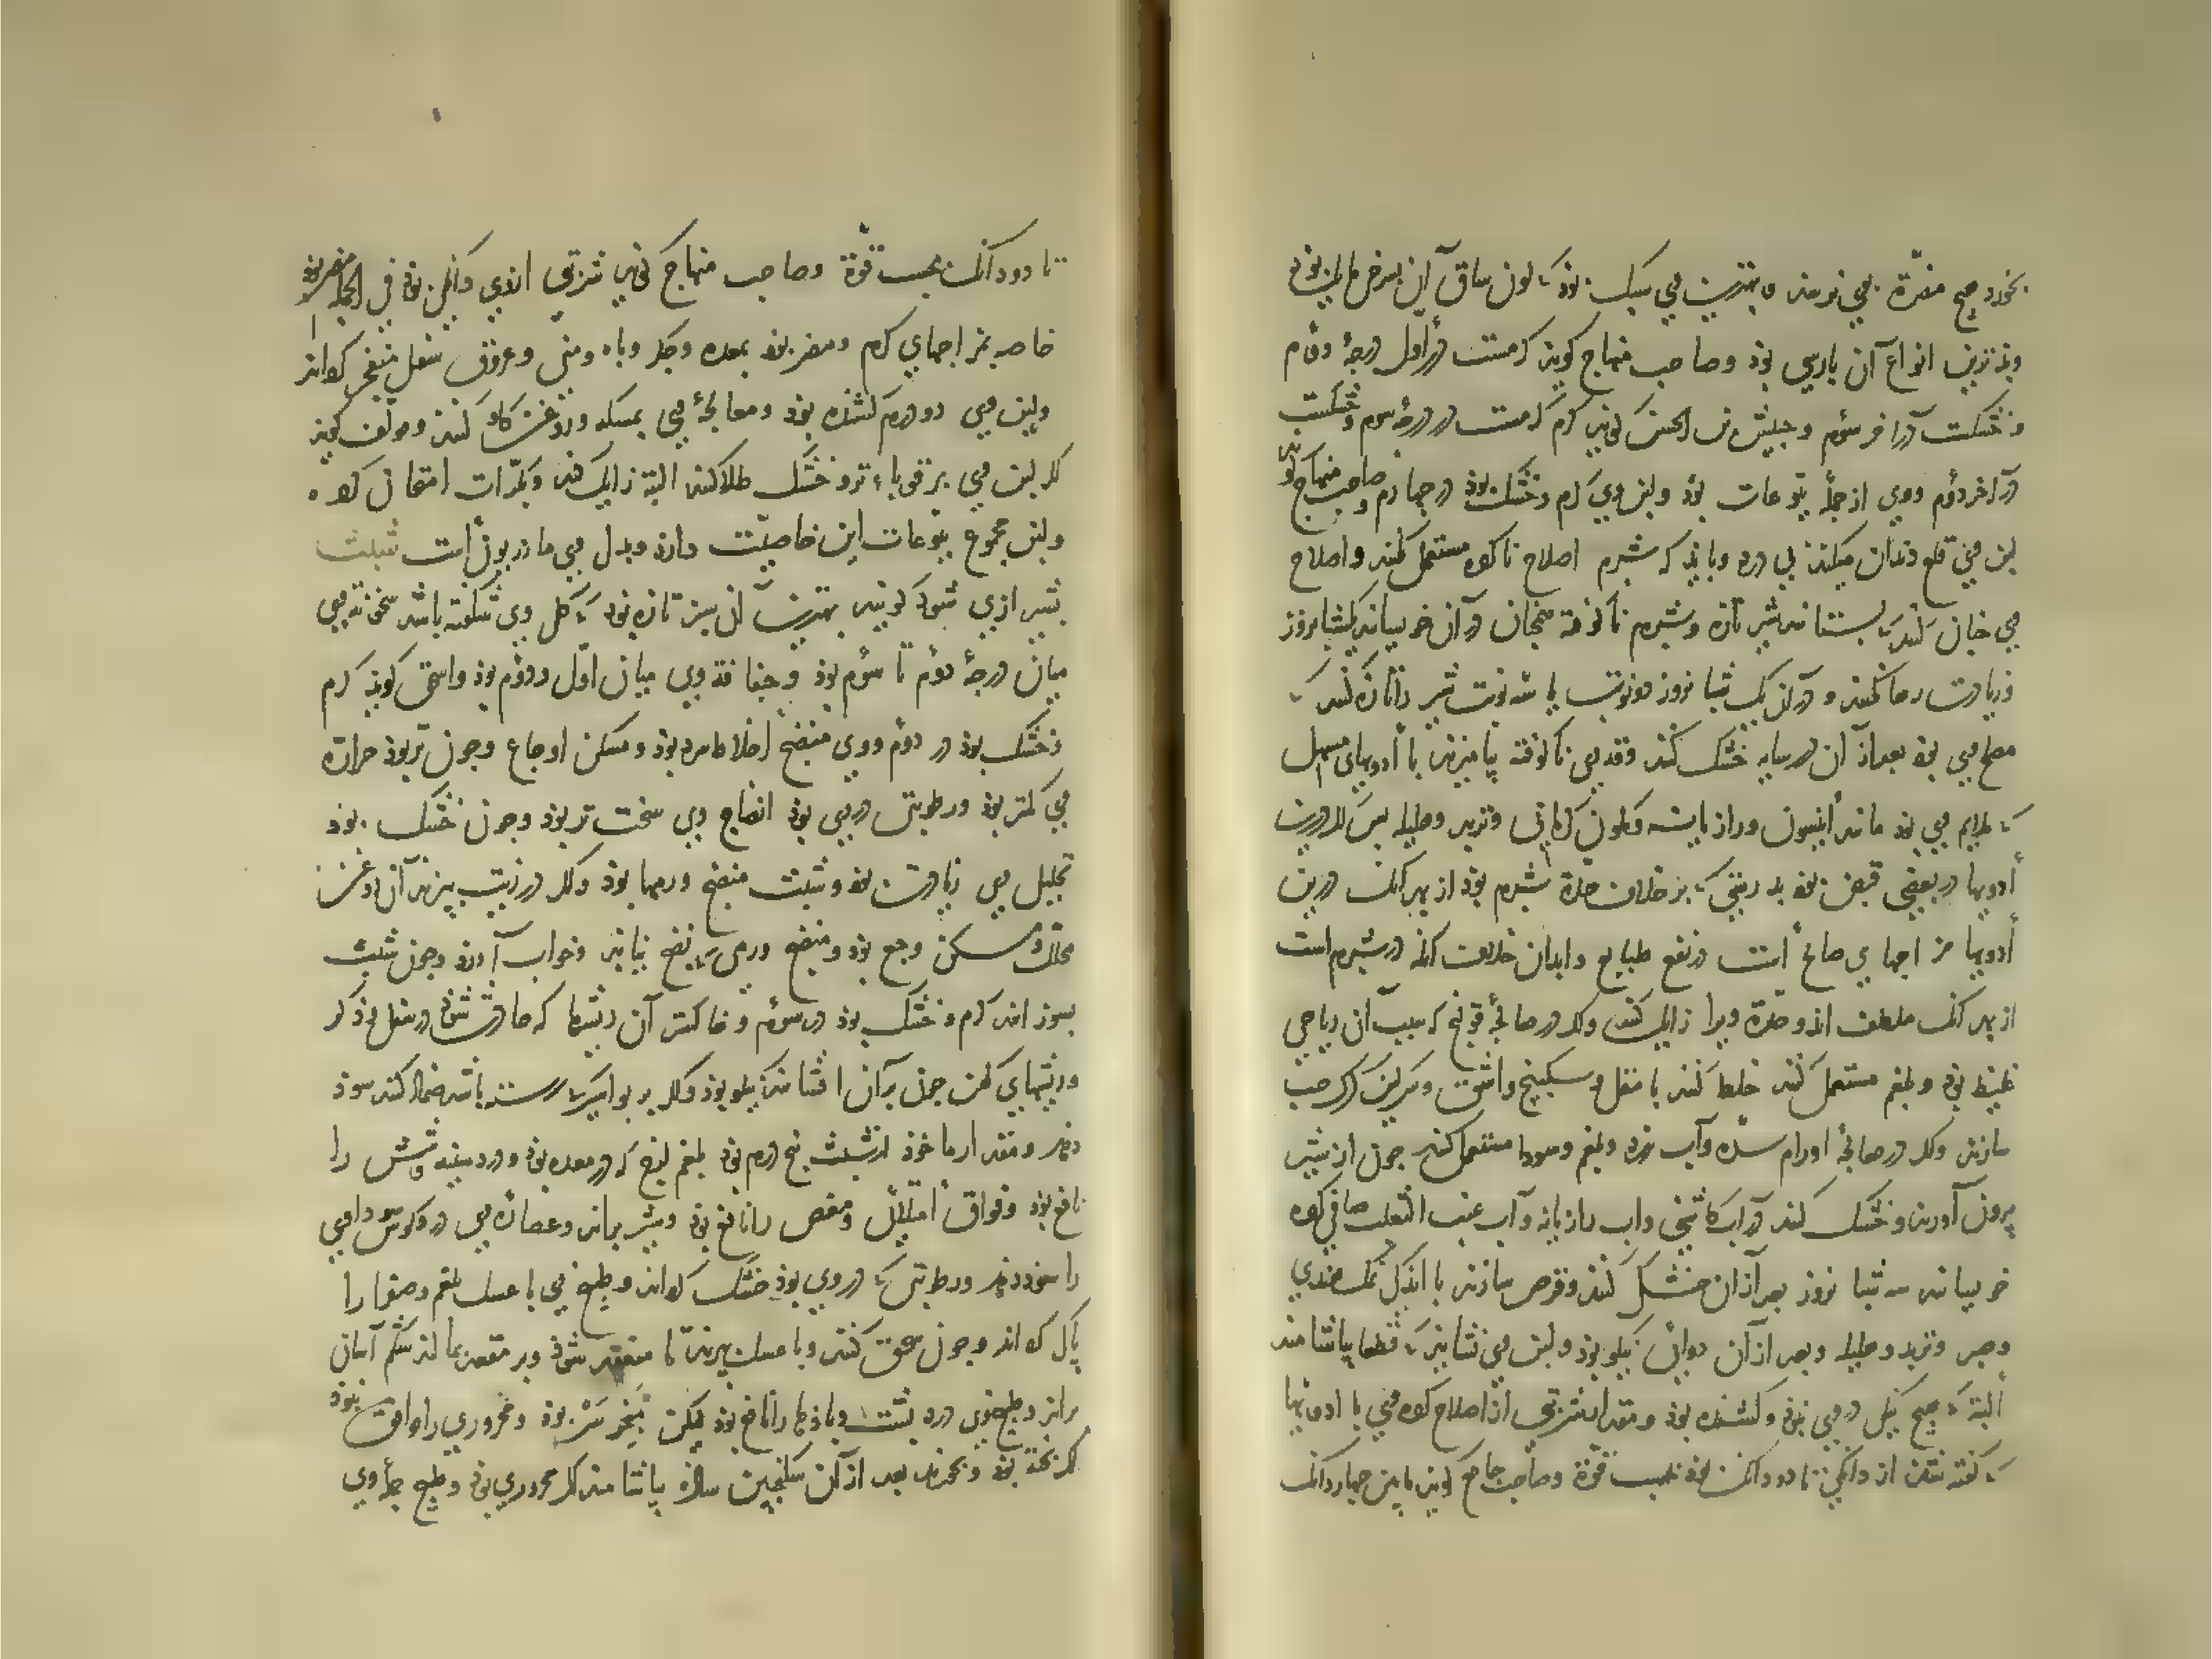 بخورد هیچ مضرة بوی نرسد و بهترین وی سبک بود که لون ساق آن بسرخی مایل بود
وبدترین انواع آن پارسی بود وصاحب منهاج کوید کرمست در اول درجۀ دوم
وخشکست در آخر سوم وحبیش بن الحسن کوید کرم کرمست در درجۀ سوم وخشکست
در آخر دوم ووی از جملۀ یتوعات بود ولبن وی کرم وخشک بود در چهارم وصاحب منهاج کوید
لبن وی قلع دندان میکند بی درد وباید که شبرم اصلاح ناکرده مستعمل نکنند واصلاح
وی چنان کنند که بستانند شیر تازه وشبرم ناکوفته همچنان در آن خویسانند یکشبانروز
وزیادت رها نکنند و در آن یک شبانروز دو نوبت یا سه نوبت شیر را تازه کنند که
مصلح وی بود بعد از آن در سایه خشک کنند وقدری ناکوفته بیامیزند با أدویهای مسهل
که ملایم وی بود مانند أنیسون ورازیانه وکمون کرمانی وتربد وهلیله پس اکر درین
أدویها در بعضی قبض بود بد نیست که بر خلاف حدة شبرم بود از بهر آنک درین
أدویها مزاجهای صالح أست در نفع طبایع وابدان خلاف آنکه در شبرم است
از بهر آنک ملطف اند وحدة ویرا زایل کنند واکر در معالجۀ قولنج که سبب آن ریاحی
غلیظ بود وبلغم مستعمل کنند خلط کنند با مقل وسکبینج واشق وسرکین کرک حب
سازند واکر در معالجۀ اورام سده وآب زرد وبلغم وسودا مستعمل کنند چون از شیر
بیرون آورند وخشک کنند در آب کاسنی وآب رازیانه وآب عنب الثعلب صافی کرده
خویسانند سه شبانروز بعد از آن خشک کنند وقرص سازند با اندکی نمک هندی
وصبر وتربد وهلیله وبعد از آن دوائی نیکو بود ولبن وی نشاید که قطعا بیاشامند
ألبته که هیچ نیکی در وی نبود وکشنده بود ومقدار شربتی از اصلاح کرده وی با ادویها
که کفته شد از دانکی تا دو دانک بود بحسب قوة وصاحب جامع کوید مابین چهار دانک
تا دو دانک بحسب قوة وصاحب منهاج کوید شربتی از وی دانکی بود فی الجملة مضر بود
خاصه بمزاجهای کرم ومضر بود بمعده وجکر وباه ومنی وعروق سفل منفجر کرداند
ولبن وی دو درم کشنده بود ومعالجۀ وی بمسکه وروغن کاو کنند ومؤلف کوید
اکر لبن وی بر قوباء تر وخشک طلا کنند البتة زایل کند وبکرات امتحان کرده
ولبن مجموع یتوعات این خاصیت دارد وبدل وی مازریون أست شبث
بشیرازی شود کویند بهترین آن سبز تازه بود که کل وی شکفته باشد سخونة وی
میان درجۀ دوم تا سوم بود وجفافة وی میان اول ودوم بود واسحق کوید کرم
وخشک بود در دوم ووی منضج اخلاط سرد بود ومسکن اوجاع وچون تر بود حرارة
وی کمتر بود ورطوبتی در وی بود انضاج وی سخت تر بود وچون خشک بود
تحلیل وی زیادت بود وشبث منضج ورمها بود واکر در زیت بپزند آن روغن
محلل ومسکن وجع بود ومنضج ورمی که نضج نیابد وخواب آورد وچون شبث
بسوزانند کرم وخشک بود در سوم وخاکستر آن ریشها که حادث شود در مقعد وذکر
وریشهای کهن چون بر آن افشانند نیکو بود واکر بر بواسیر که رسته باشد ضماد کنند سود
دهد ومقدار ماخوذ از شبث پنج درم بود بلغم لزج که در معده بود ودرد سینه وشش را
نافع بود وفواق أمتلائی ومغص را نافع بود وشیر براند وعصارۀ وی درد کوش سوداوی
را سود دهد ورطوبتی که در وی بود خشک کرداند وطبیخ وی با عسل بلغم وصفرا را
پاک کرداند وچون سحق کنند وبا عسل بپزند تا منعقد شود وبر مقعد بمالند شکم آسان
براند وطبیخ وی درد پشت وبادها را نافع بود لیکن مبخر سر بود ومحروری را موافق نبود
اکر پخته بود وبخورند بعد از آن سکنجبین ساده بیاشامند اکر محروری بود وطبع جمله وی